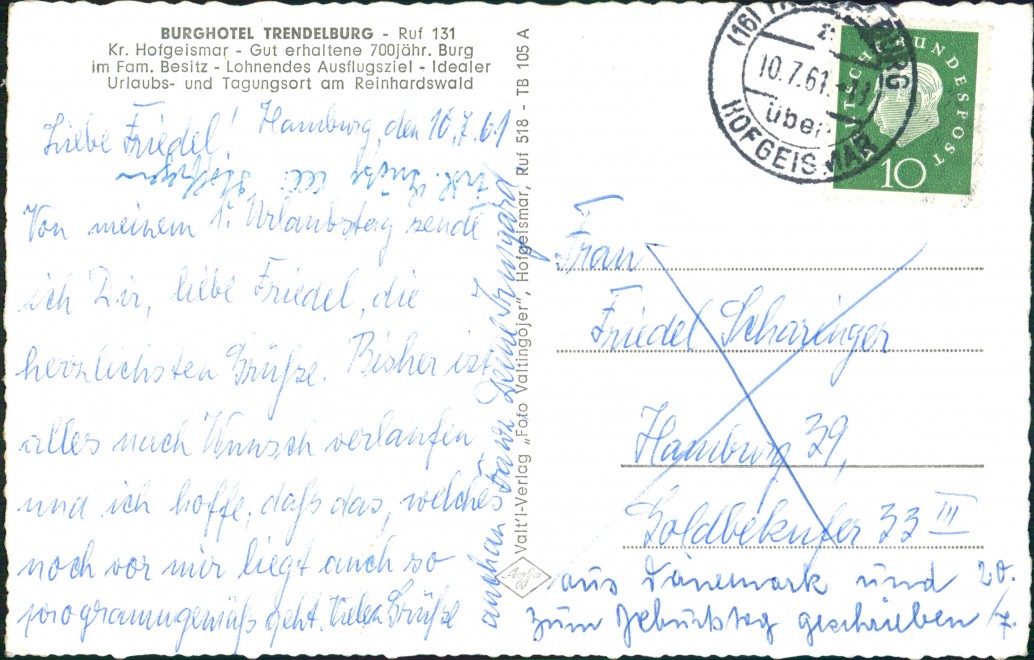 BURGHOTEL TRENDELBURG - Ruf 131
Kr. Hofgeismar - Gut erhaltene 700jähr. Burg
im Fam. Besitz - Lohnendes Ausflugsziel - Idealer
Urlaubs- und Tagungsort am Reinhardswald
Hamburg, den 10.7.61
Liebe Friedel!
Von meinem 1. Urlaubstag sende
ich Dir, liebe Friedel, die
herzlichsten Grüße. Bisher ist
alles nach Wunsch verlaufen
und ich hoffe, daß das, welches
noch vor mir liegt auch so
programmgemäß geht. Viele Grüße
auch an Franz Deine Irmgard
Valt'l-Verlag „Foto Valtingojer", Hofgeismar, Ruf 518 - TB 105 A
Agfa
(16)
BURG
10.7.61
über
HOFGEISMAR
DEUTSCHE BUNDESPOST
10
Frau
Friedel Scharinger
Hamburg 39,
Goldbekufer 33 III
aus Dänemark und 20./7.
zum Geburtstag geschrieben